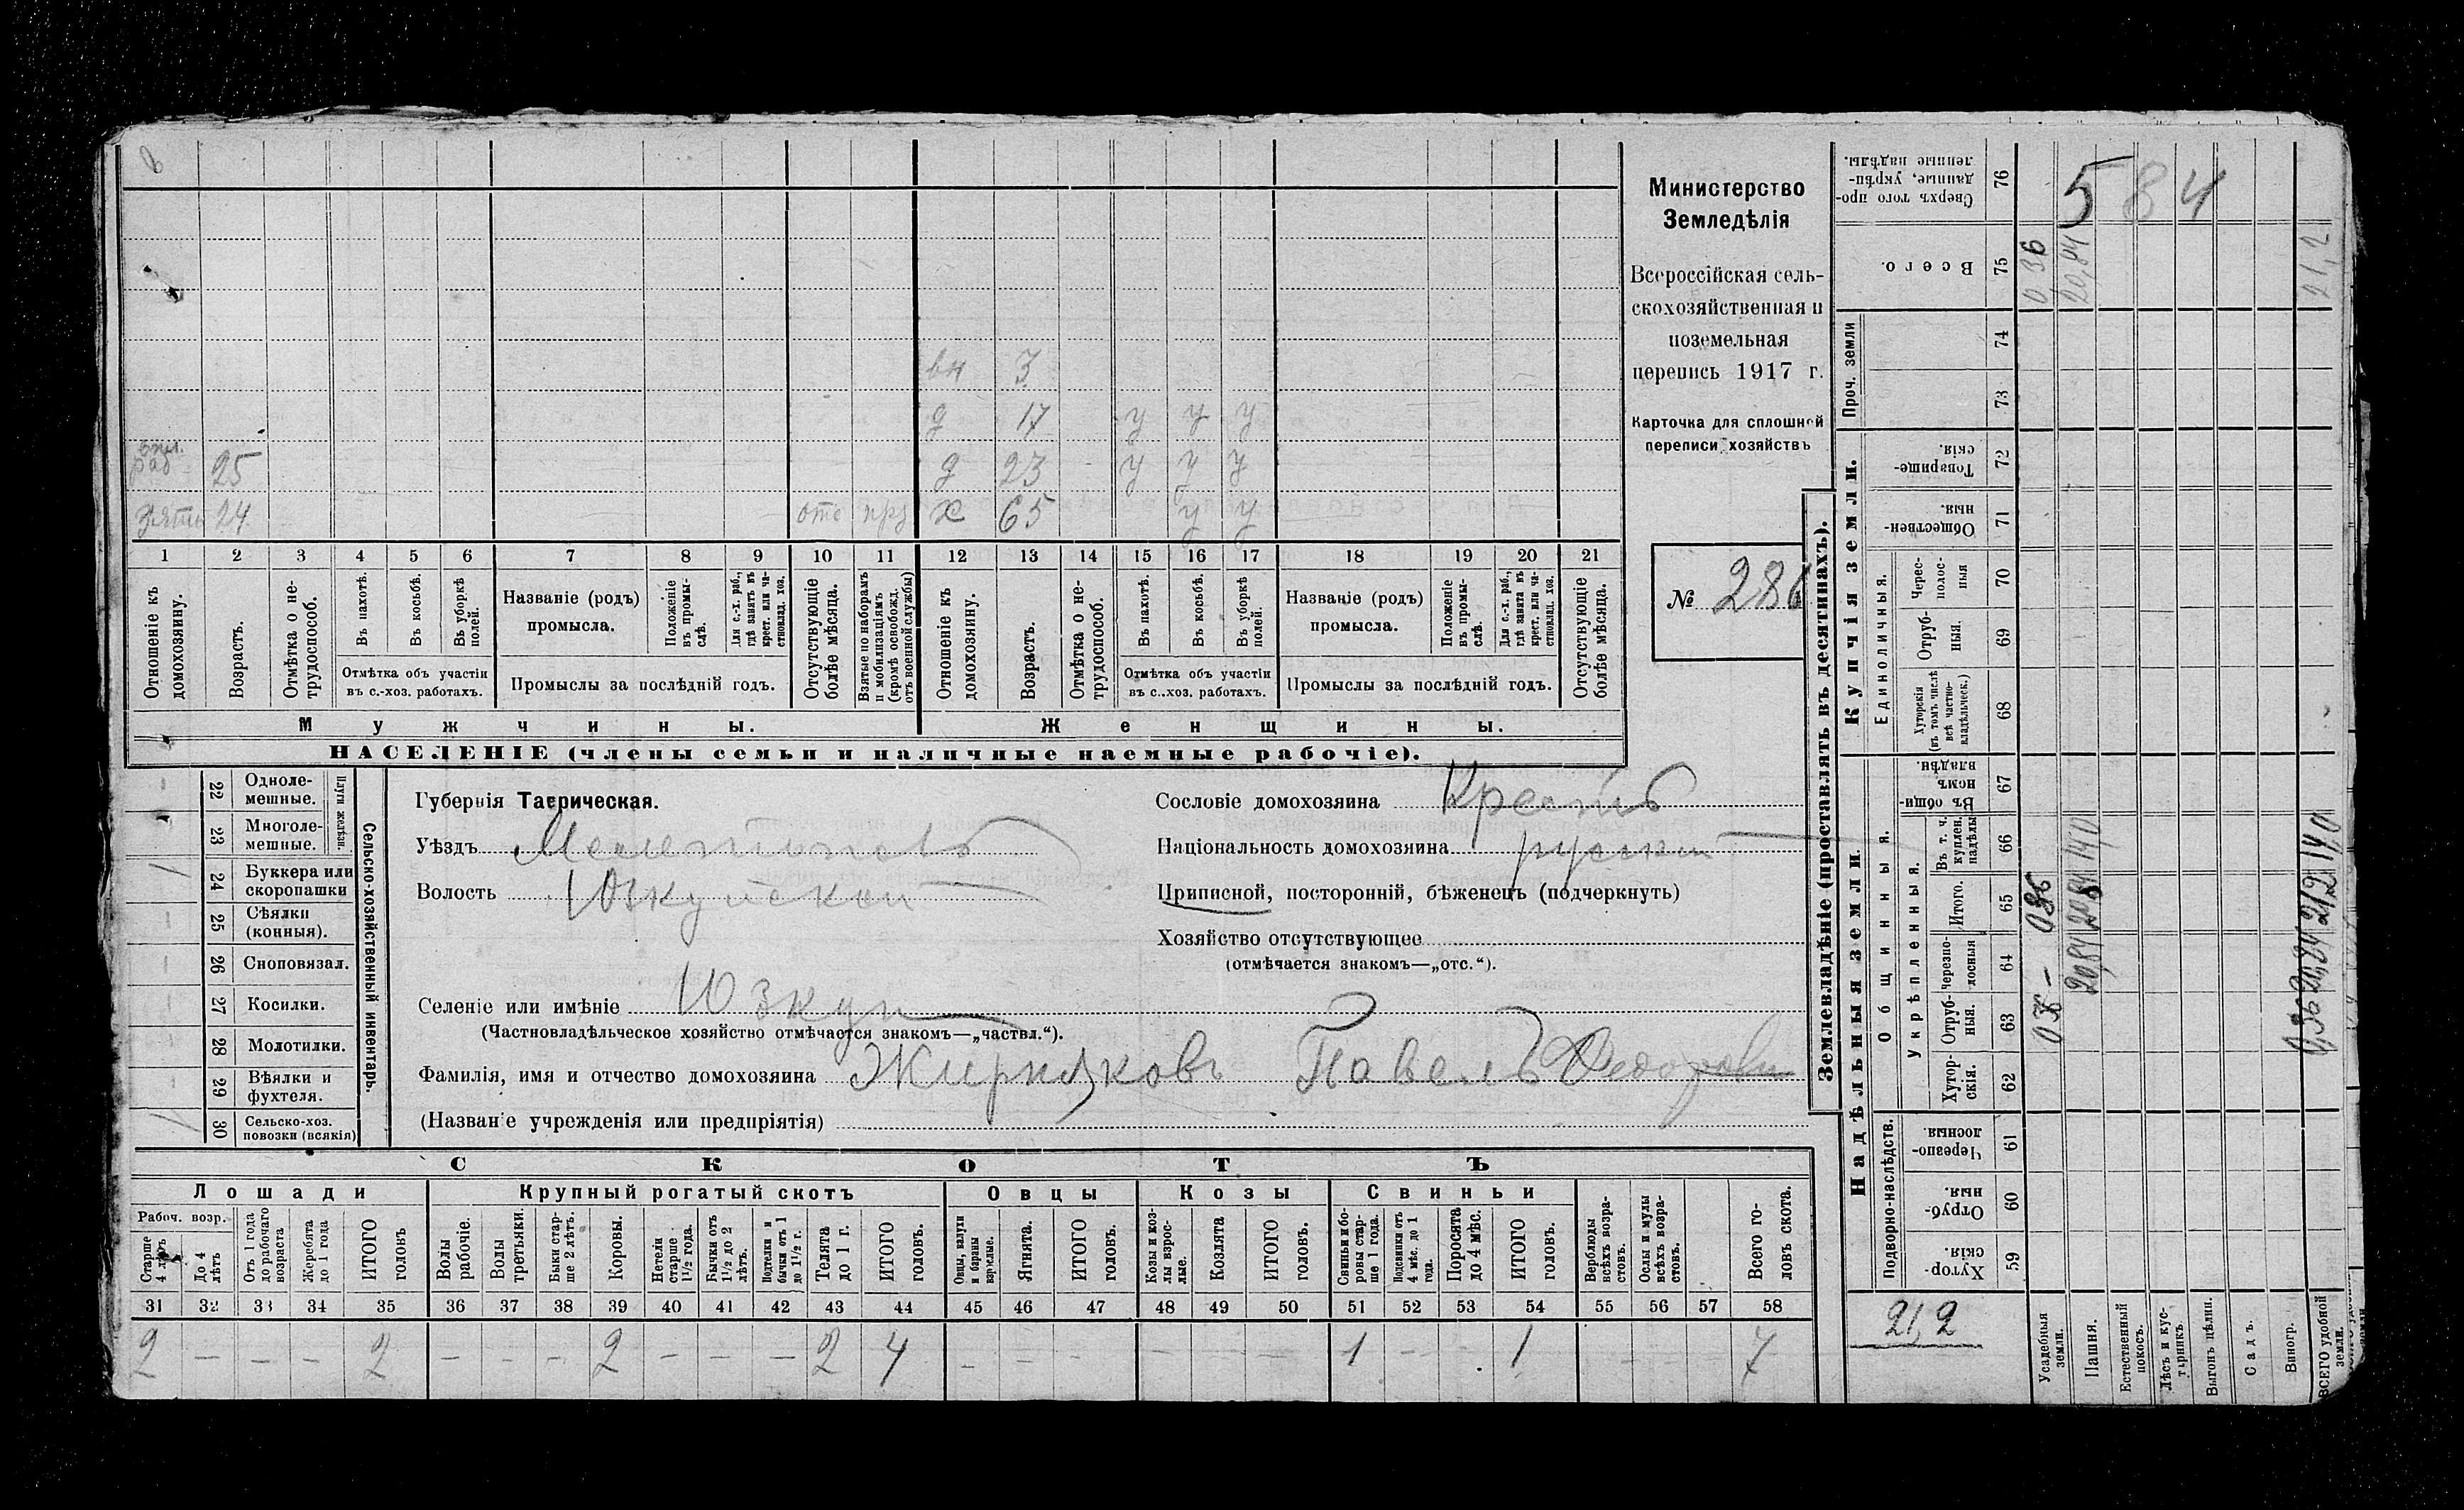 вн 3
д 17 у у у
раб 25 д 23 у у у
зять 24 отс прз х 65 у у
1 2 3 4 5 6 7 8 9 10 11 12 13 14 15 16 17 18 19 20 21
Отношеніе къ домохозяину.
Возрастъ.
Отмѣтка о не-трудоспособ.
Въ пахотѣ.
Въ косьбѣ.
Въ уборкѣ полей.
Отмѣтка объ участіи
въ с.-хоз. работахъ.
Названіе (родъ)
промысла.
Положеніе въ промы-слѣ.
Для с.-х. раб., гдѣ занятъ въ крест. или ча-стновлад. хоз.
Промыслы за послѣдній годъ.
Отсутствующіе болѣе мѣсяца.
Взятые по наборамъ и мобилизаціямъ (кромѣ освобожд. отъ военной службы)
Отношеніе къ домохозяину.
Возрастъ.
Отмѣтка о не-трудоспособ.
Въ пахотѣ.
Въ косьбѣ.
Въ уборкѣ полей.
Отмѣтка объ участіи
въ с.-хоз. работахъ.
Названіе (родъ)
промысла.
Положеніе въ промы-слѣ.
Для с.-х. раб., гдѣ занята въ крест. или ча-стновлад. хоз.
Промыслы за послѣдній годъ.
Отсутствующіе болѣе мѣсяца.
Мужчины. Женщины.
НАСЕЛЕНІЕ (члены семьи и наличные наемные рабочіе).
Министерство
Земледѣлія
Всероссійская сель-
скохозяйственная и
поземельная
перепись 1917 г.
Карточка для сплошной
переписи хозяйствъ
№ 286
22 Одноле-мешные.
23 Многоле-мешные.
Плуги желѣзн.
24 Буккера или скоропашки
25 Сѣялки (конныя).
26 Сноповязал.
27 Косилки.
28 Молотилки.
29 Вѣялки и фухтеля.
30 Сельско-хоз. повозки (всякія)
Сельско-хозяйственный инвентарь.
Губернія Таврическая.
Уѣздъ Мелитополь
Волость Юзкуйской
Селеніе или имѣніе Юзкуи
(Частновладѣльческое хозяйство отмѣчается знакомъ—„частвл.“).
Фамилія, имя и отчество домохозяина Жирняковъ Павелъ Федоровъ
(Названіе учрежденія или предпріятія)
Сословіе домохозяина Крестъ
Національность домохозяина русскій
Приписной, посторонній, бѣженецъ (подчеркнуть)
Хозяйство отсутствующее
(отмѣчается знакомъ—„отс.“).
СКОТЪ
Лошади Крупный рогатый скотъ Овцы Козы Свиньи
Рабоч. возр.
Старше 4 лѣтъ
До 4 лѣтъ
Отъ 1 года до рабочаго возраста
Жеребята до 1 года
ИТОГО головъ
Волы рабочіе.
Волы третьяки.
Быки стар-ше 2 лѣтъ.
Коровы.
Нетели старше 1½ года.
Бычки отъ 1½ до 2 лѣтъ.
Подтелки и бычки отъ 1 до 1½ г.
Телята до 1 г.
ИТОГО головъ.
Овцы, валухи и бараны взрослые.
Ягнята.
ИТОГО головъ.
Козы и коз-лы взрос-лые.
Козлята
ИТОГО головъ.
Свиньи и бо-ровы стар-ше 1 года.
Подсвинки отъ 4 мѣс. до 1 года.
Поросята до 4 мѣс.
ИТОГО головъ.
Верблюды всѣхъ возра-стовъ.
Ослы и мулы всѣхъ возра-стовъ.
Всего го-ловъ скота.
31 32 33 34 35 36 37 38 39 40 41 42 43 44 45 46 47 48 49 50 51 52 53 54 55 56 57 58
2 — — — 2 — — — 2 — — — 2 4 — — — — — — 1 — — 1 7
Землевладѣніе (проставлять въ десятинахъ).
Купчія земли.
Надѣльныя земли.
Проч. земли
Единоличныя.
Общинныя.
Укрѣпленныя.
Подворно-наслѣдств.
76 Сверхъ того про-данные, укрѣп-ленные надѣлы.
75 Всего.
74
73
72 Товарище-скія.
71 Обществен-ныя.
70 Черес-полос-ныя
69 Отруб-ныя.
68 Хуторскія (въ томъ числѣ всѣ частно-владѣльческ.)
67 Въ общи-номъ владѣн.
66 Въ т. ч. куплен. надѣлы
65 Итого.
64 Черезпо-лосныя
63 Отруб-ныя.
62 Хутор-скія.
61 Черезпо-лосныя.
60 Отруб-ныя.
59 Хутор-скія.
584
036
20,84
21,2
20,84 20,84 14,0
0,36 20,84 21,2 14,0
21,2
Усадебныя земли.
Пашня.
Естественный покосъ.
Лѣсъ и кус-тарникъ.
Выгонъ цѣлин.
Садъ.
Виногр.
ВСЕГО удобной земли.